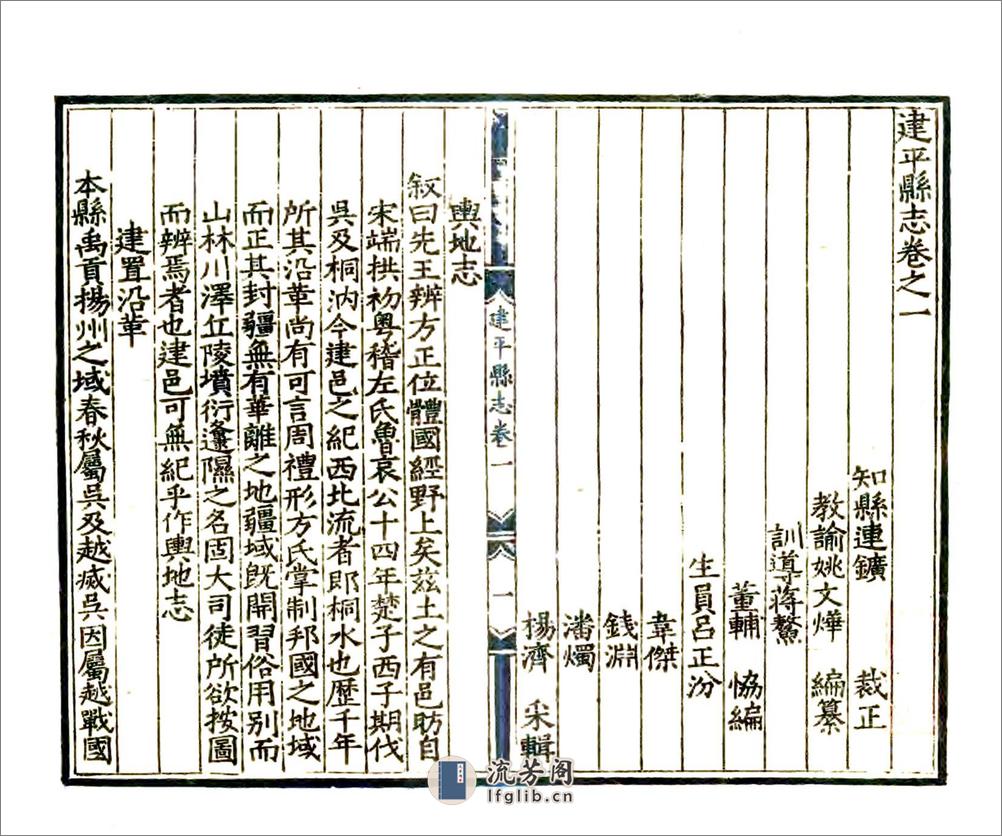 建平縣志卷之一
知縣連鑛 裁正
教諭姚文燁 編纂
訓導蔣鰲
董輔 恊編
生員呂正汾
韋傑
錢淵
潘燭
楊濟 采輯
建平縣志卷一
一
輿地志
叙曰先王辨方正位體國經野上矣茲土之有邑昉自
宋端拱初粵稽左氏魯哀公十四年楚子西子期伐
吳及桐汭今建邑之紀西北流者即桐水也歷千年
所其沿革尚有可言周禮形方氏掌制邦國之地域
而正其封疆無有華離之地疆域既開習俗用別而
山林川澤丘陵墳衍邍隰之名固大司徒所欲按圖
而辨焉者也建邑可無紀乎作輿地志
建置沿革
本縣禹貢揚州之域春秋屬吳及越烕吳因屬越戰國
流芳阁
lfglib.cn